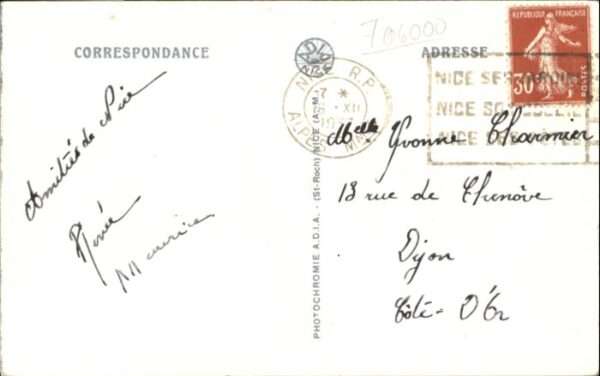 CORRESPONDANCE
Amitiés de Nice
Renée
Maurice
ADIA
NICE
PHOTOCHROMIE A.D.I.A. - (St-Roch) NICE (A.-M.)
706000
ADRESSE
REPUBLIQUE FRANÇAISE
30 c
POSTES
NICE R.P.
7 *
XII
ALPES MAR
NICE SES
NICE SON SOLEIL
NICE SES FÊTES
Melle Yvonne Charmier
13 rue de Chenôve
Dijon
Côte-D'Or